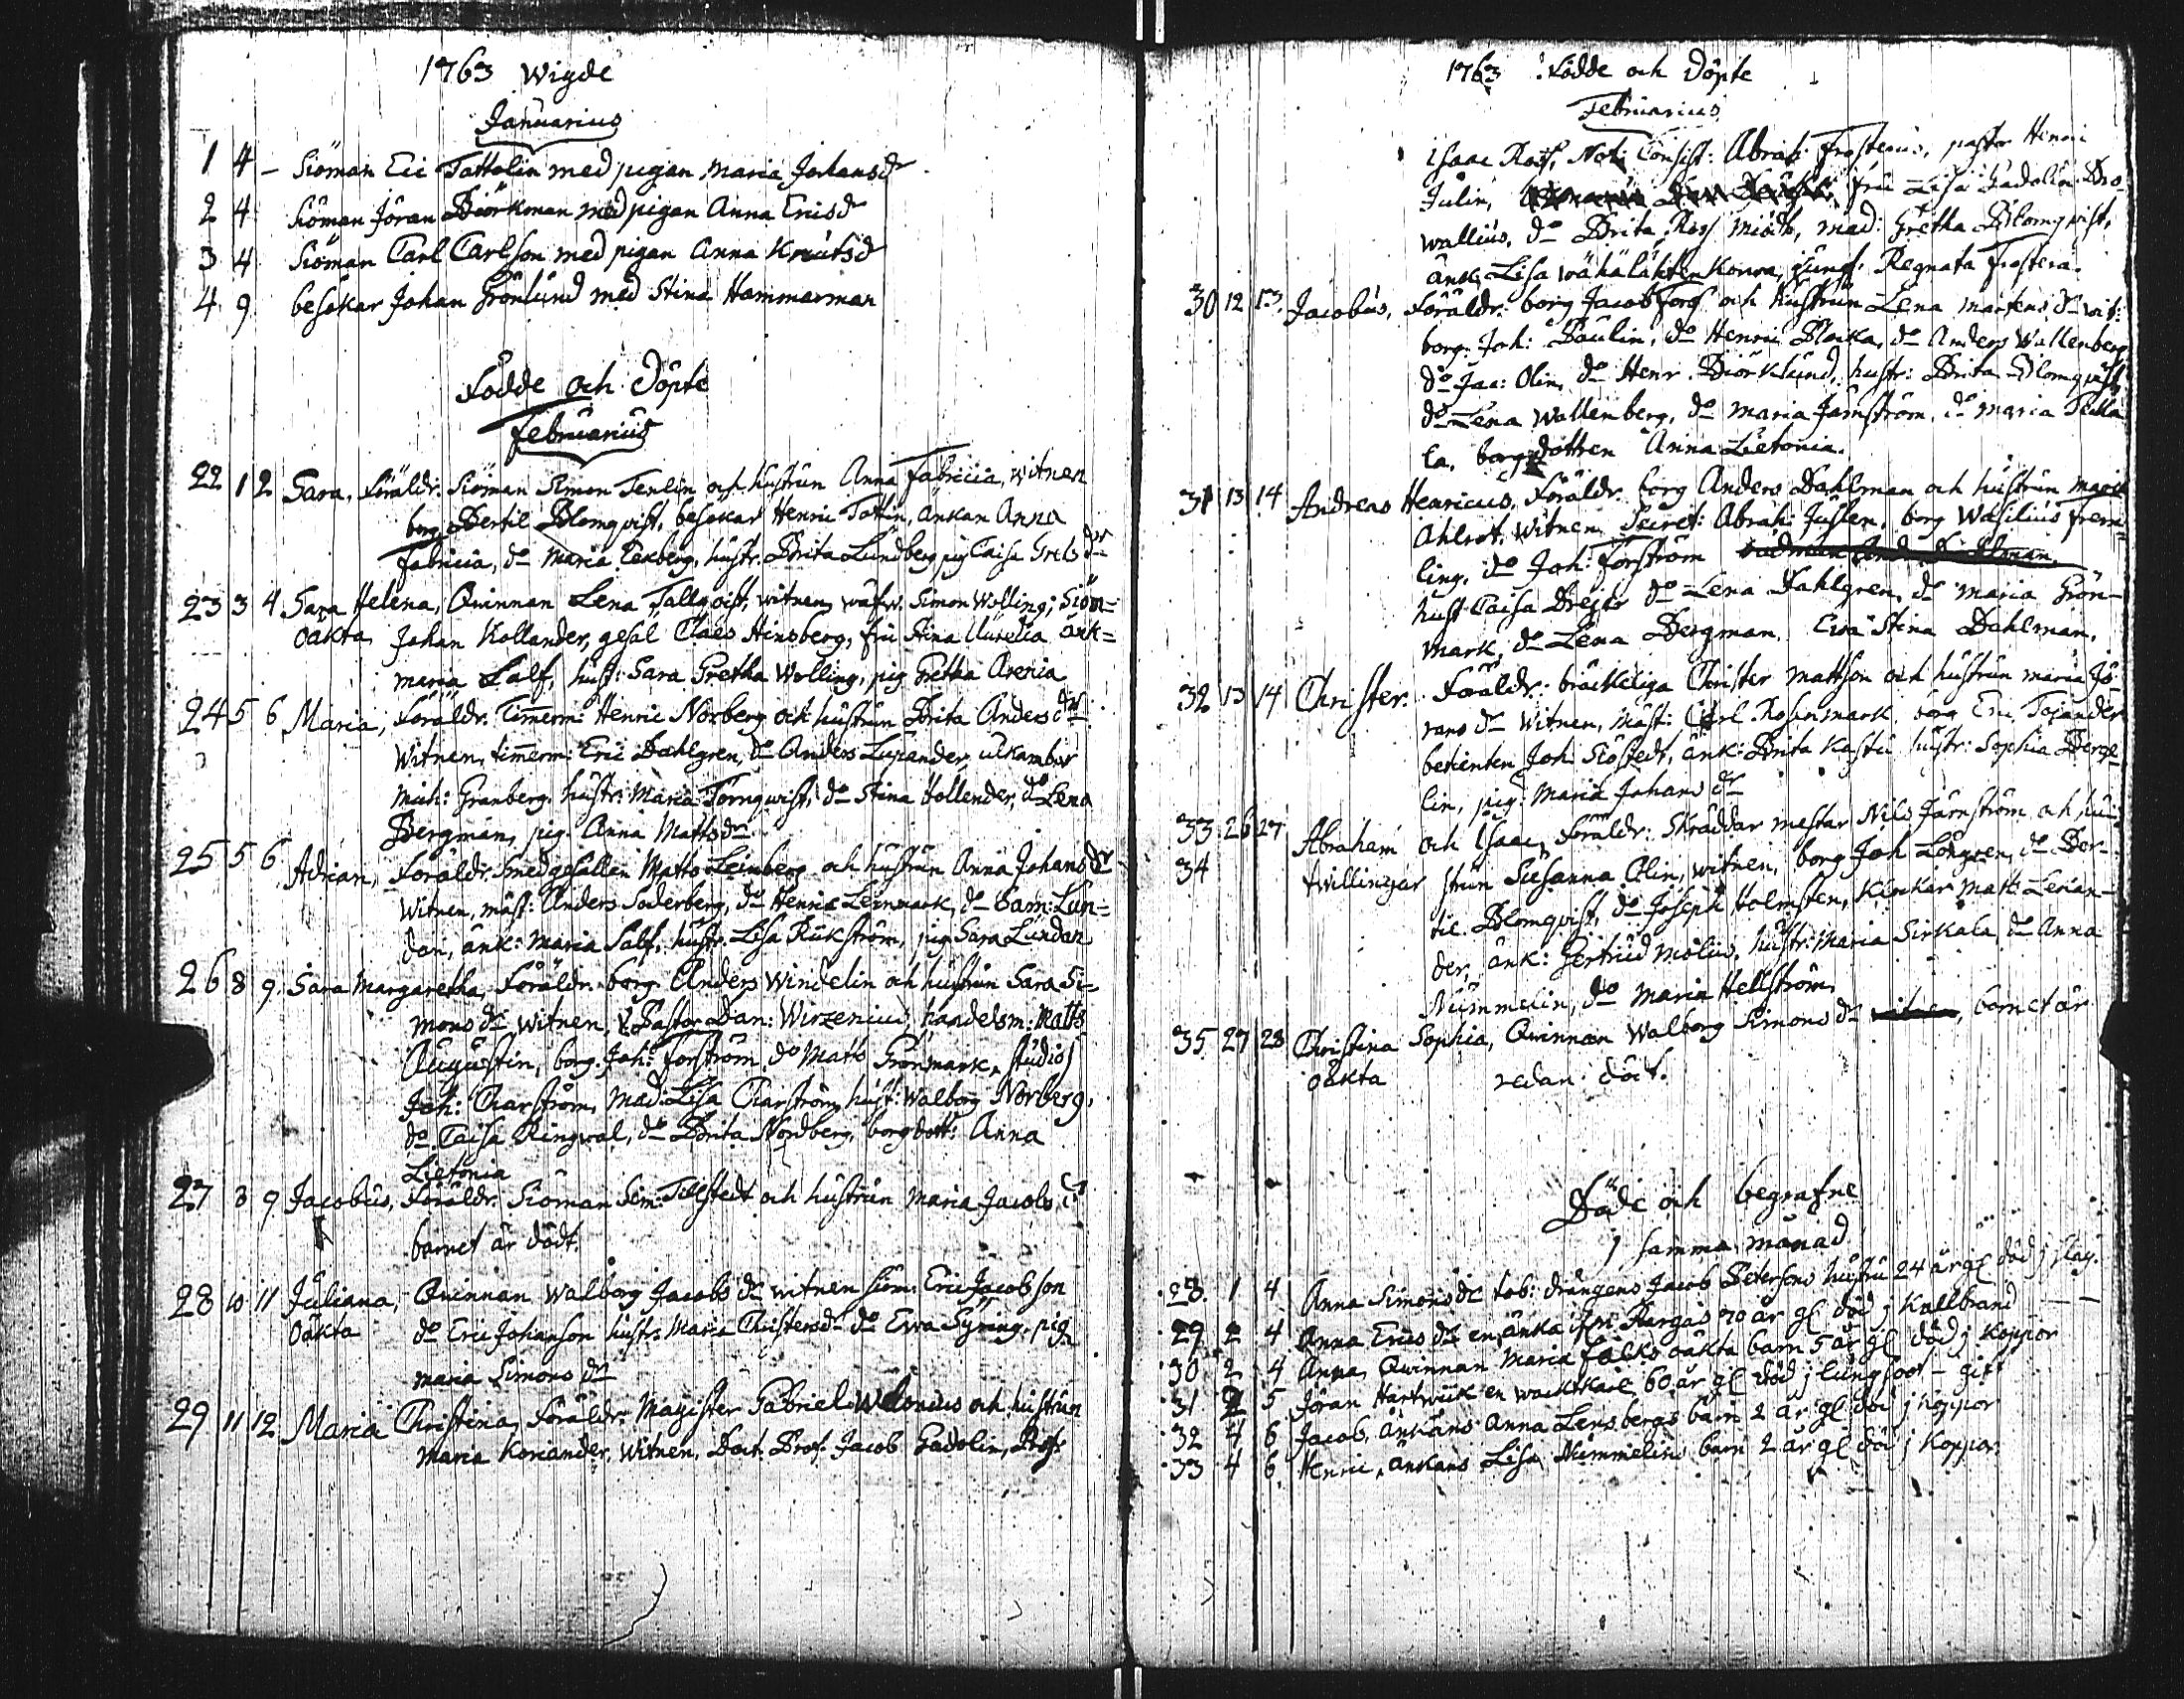 1763 Wigde
Januarius
1 4 – Siöman Eric Tattelin med pigan Maria Johansdr
2 4 Siöman Jöran Biörkman med pigan Anna Ericsd
3 4 Siöman Carl Carlson med pigan Anna Knutsd
4 9 besökar Johan Grönlund med Stina Hammarman
Födde och Döpte
Februarius
22 1 2 Sara, Föräldr: Siöman Simon Tenlin och hustrun Anna Fabricia, witnen
borg Bertil Blomqvist, besökar Henric Tattin, änkan Anna
Fabricia, do Maria Ekberg, hustr. Brita Lundberg pig Caisa Grelsdr
23 3 4 Sara Helena, Qvinnan Lena Tallqvist, witnen wäfw. Simon Wolling, Siöm:
Oäkta Johan Hollander, gesäl Claes Hinsberg, fru Stina Aurelia änk=
Maria Salf, hust: Sara Gretha Wolling, pig Gretha Arenia
24 5 6 Maria, Föräldr. Timmerm: Henric Norberg och hustrun Brita Andersdr
Witnen, timmerm: Eric Dahlgren, do Anders Lupander, ulkambar
Mich: Granberg, hustr: Maria Törnqvist, do Stina Hollender, do Lena
Bergman, pig. Anna Mattsdr
25 5 6 Adrian, Föräldr. Smedgesällen Matts Leinberg och hustrun Anna Johansdr
Witnen, mäst: Anders Söderberg, do Henric Leinmark, do Sam: Lun=
dan, änk: Maria Salf, hustr. Lisa Rükström, pig Sara Lundan
26 8 9 Sara Margaretha, Föräldr. borg. Anders Windelin och hustrun Sara Si=
monsdr witnen, V. Pastor Dan: Wirzenius, handelsm: Matts
Augustin, borg. Joh: Forström, do Matts Grönmark, studios
Joh: Charström, Mad: Lisa Charström, hust: Walborg Norberg,
do Caisa Ringwal, do Brita Nordberg, borgdott: Anna
Lietonia
27 8 9 Jacobus, Föräldr. Siöman Sim: Tillstedt och hustrun Maria Jacobsdr
barnet är dödt.
28 10 11 Juliana, Qvinnan Walborg Jacobsdr witnen Siöm: Eric Jacobson
Oäkta do Eric Johanson hustr: Maria Christersdr do Ewa Syring, pig
Maria Simonsdr
29 11 12 Maria Christina, Föräldr. Magister Gabriel Welonius och hustrun
Maria Koriander, Witnen, Doct. Prof. Jacob Gadolin, Profs
1763 Födde och Döpte
Februarius
Isaac Ross, Not: Consist: Abrah: Frosterus, pastor Henric
Julin, fru Lisa Gadolin Bro=
wallius, do Brita Ross Miödh, mad: Gretha Blomqvist,
änk, Lisa Wähäläkten Korva, jungf. Regnata Frostera.
30 12 13 Jacobus, Föräldr: borg Jacob Fors och hustrun Lena Martensdr wit:
borg: Joh: Paulin, do Henric Blocka, do Anders Wallenberg
do Jac: Olin, do Henr Biörklund, hustr: Brita Blomqvist,
do Lena Wallenberg, do Maria Järnström, do Maria Seika
la, borg dottren Anna Lietonia.
31 13 14 Andreas Henricus, Föräldr. borg Anders Dahlman och hustrun Maria
Ahlrot, Witnen, Secret: Abrah: Juslen, borg Wasilius frem=
ling, do Joh: Forström
hust Caisa Brejts do Lena Dahlgren, do Maria Grön-
mark, do Lena Bergman. Ewa Stina Dahlman.
32 13 14 Christer. Föräldr: bräckeliga Christer Mattson och hustrun Maria Jö
ransdr Witnen, Mäst: Carl Rosinmark borg Eric Tojander
betienten Joh: Siöstedt, änk: Brita Kastu hustr: Sophia Berge
lin, pig: Maria Johansdr
33 26 27 Abraham och Isaac, Föräldr: Skräddar mestar Nils Järnström och hu=
34 twillingar strun Susanna Olin, witnen, borg Joh Löngren, do Ber=
til Blomqvist, do Joseph Holmsten, Klockar Matt: Lerian-
der, änk: Gertrud Molin, hustr: Maria Sirkala do Anna
Nummelin, do Maria Hellström.
35 27 28 Christina Sophia, Qvinnan Walborg Simonsdr, barnet är
oäkta redan dödt.
Döde och begrafne
j samma månad
28 1 4 Anna Simonsdr tob: drängens Jacob Petersons hustru 24 år gl död j slag.
29 2 4 Anna Ericsdr en änka ifrån Pargas 70 år gl död j Kallbrand
30 2 4 Anna, Qvinnan Maria Falks oäkta barn 5 år gl död j Koppor
31 2 5 Jöran Hartwik en wacktkarl 60 år gl död j lungsoot – gift
32 4 6 Jacob, änkans Anna Lensbergs barn 2 år gl död j Koppor
33 4 6 Henric, änkans Lisa Nummelins barn 2 år gl död j Koppor